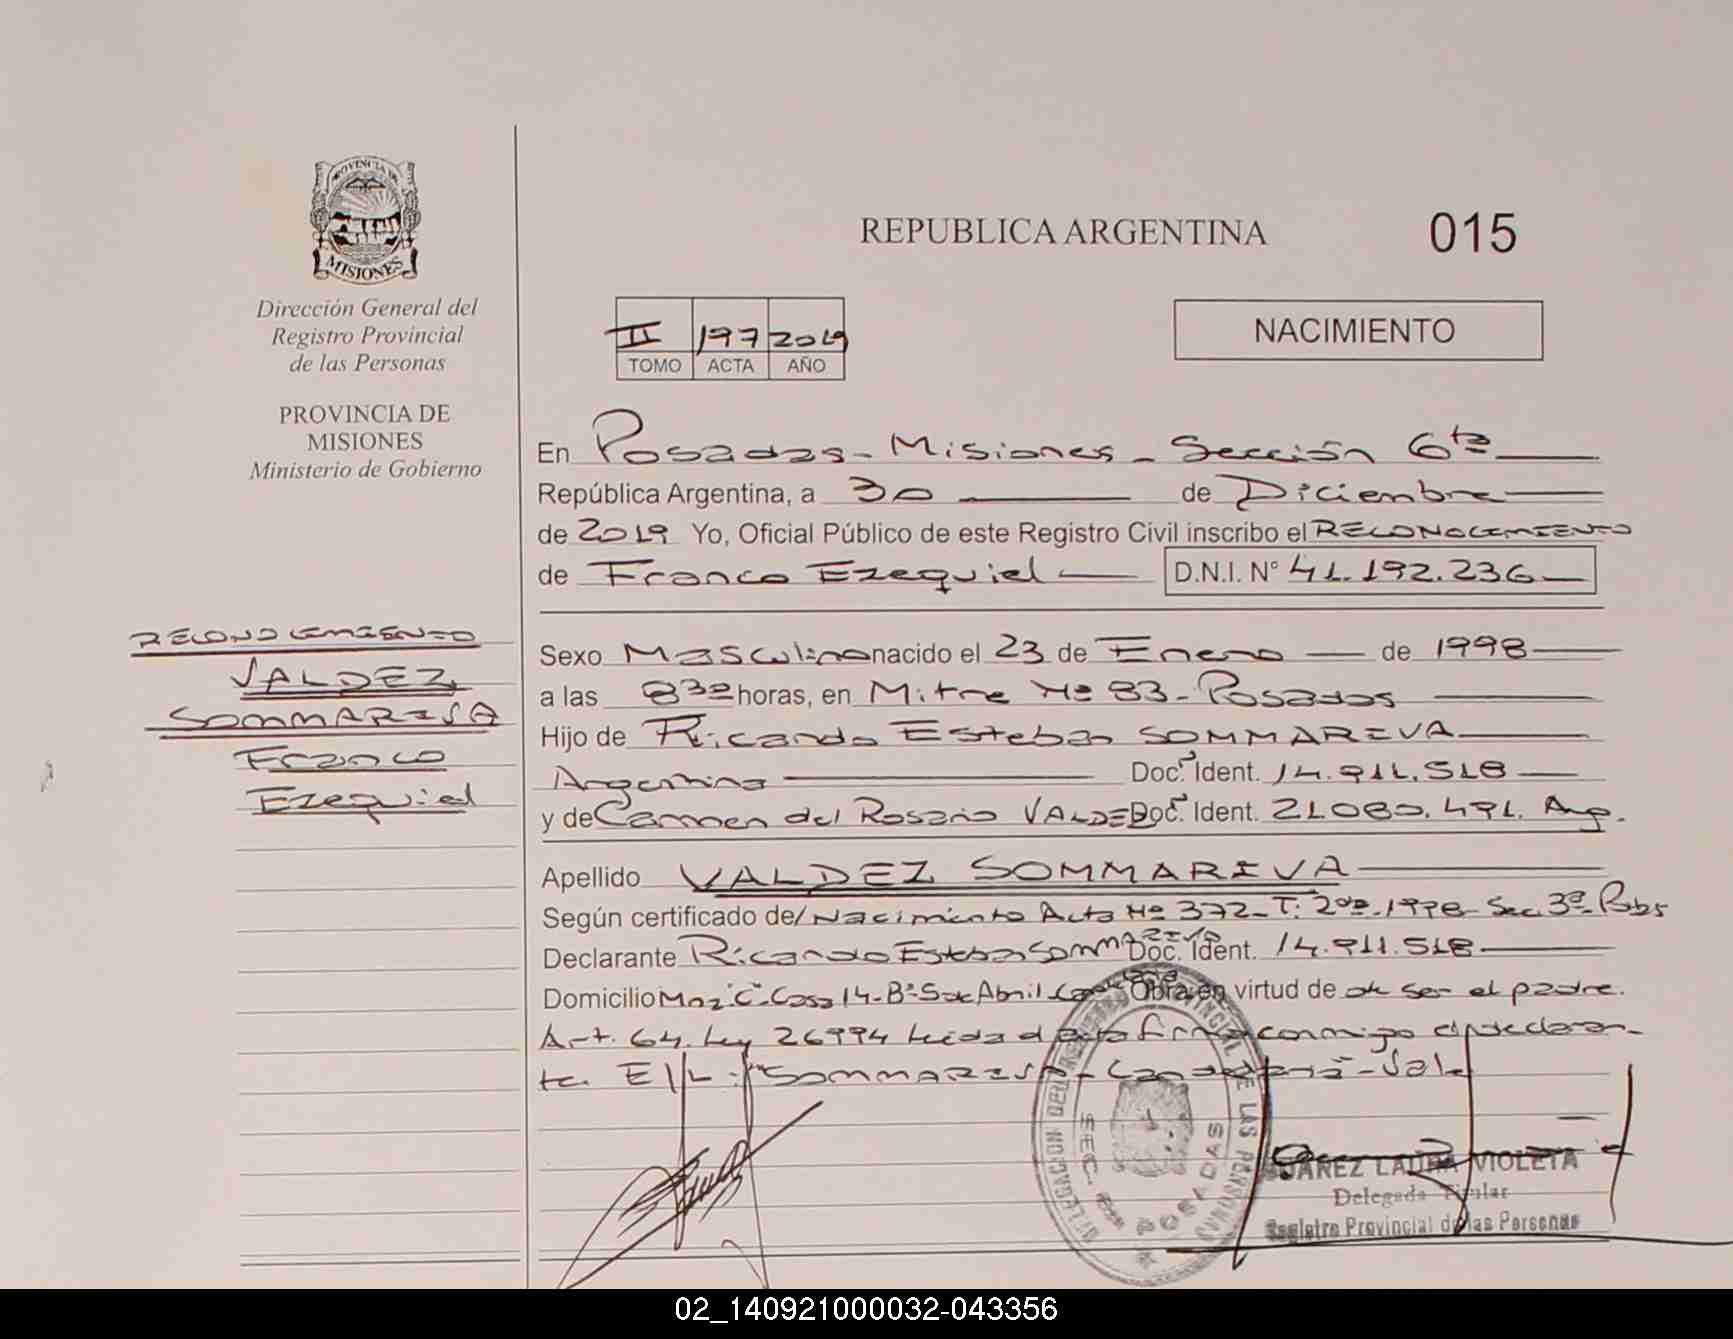 PROVINCIA DE
MISIONES
Dirección General del
Registro Provincial
de las Personas
PROVINCIA DE
MISIONES
Ministerio de Gobierno
RECONOCIMIENTO
VALDEZ
SOMMARIVA
Franco
Ezequiel
REPUBLICA ARGENTINA
015
II 197 2019
TOMO ACTA AÑO
NACIMIENTO
En Posadas - Misiones - Sección 6ta
República Argentina, a 30 de Diciembre
de 2019 Yo, Oficial Público de este Registro Civil inscribo el RECONOCIMIENTO
de Franco Ezequiel D.N.I. N° 41.192.236
Sexo Masculino nacido el 23 de Enero de 1998
a las 8 30 horas, en Mitre Nº 83 - Posadas
Hijo de Ricardo Esteban SOMMARIVA
Argentina Doc. Ident. 14.911.518
y de Carmen del Rosario VALDEZ Doc. Ident. 21.080.491. Arg.
Apellido VALDEZ SOMMARIVA
Según certificado de/ Nacimiento Acta Nº 372 - T: 2do - 1998 - Sec. 3ª - Pdas
Declarante Ricardo Esteban SOMMARIVA Doc. Ident. 14.911.518
Domicilio Mnz "C" - Casa 14 - Bº S de Abril Obra en virtud de de ser el padre.
Art. 64. Ley 26994 Leida el acta firma conmigo el declaran-
te. E/L: "SOMMARIVA - Candelaria" - Vale
DELEGACION DEL REGISTRO PROVINCIAL DE LAS PERSONAS
SEC. POSADAS
JUAREZ LAURA VIOLETA
Delegada Titular
Registro Provincial de las Personas
02_140921000032-043356